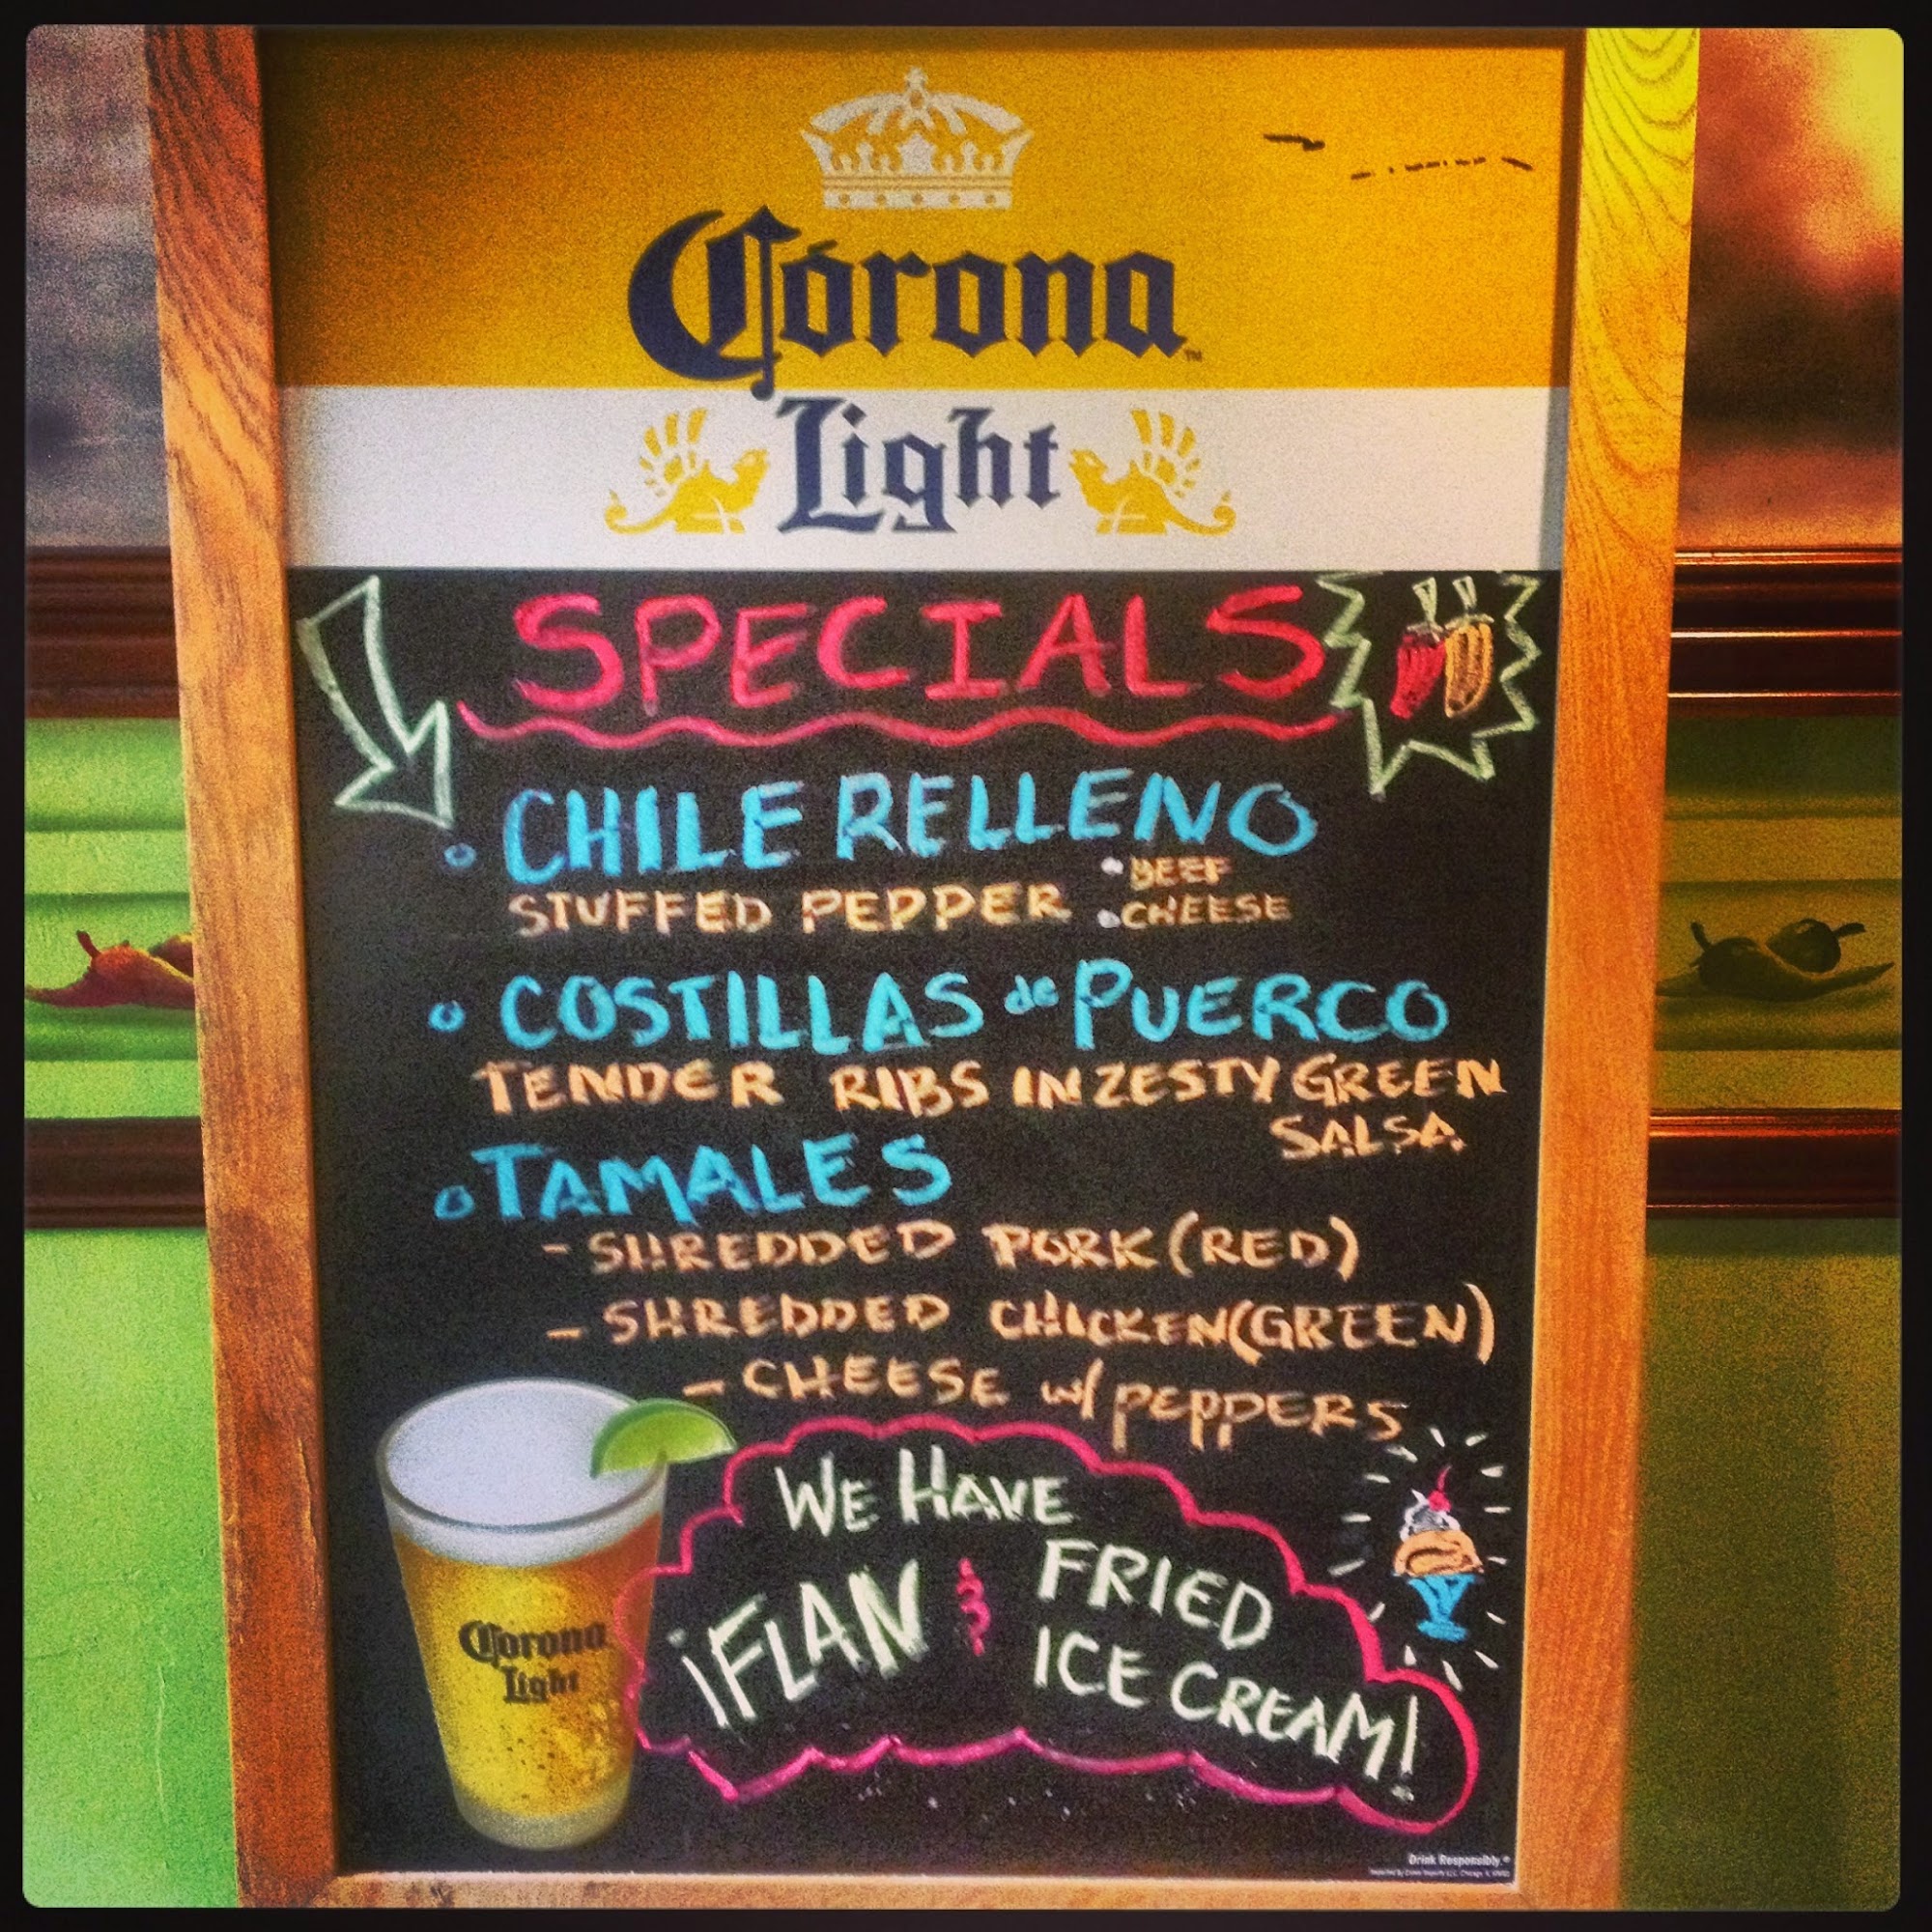 Corona™
Light
SPECIALS
CHILE RELLENO
STUFFED PEPPER
• BEEF
• CHEESE
COSTILLAS de PUERCO
TENDER RIBS IN ZESTY GREEN
SALSA
TAMALES
- SHREDDED PORK (RED)
- SHREDDED CHICKEN (GREEN)
- CHEESE w/ PEPPERS
WE HAVE
¡FLAN &
FRIED
ICE CREAM!
Corona
Light
Drink Responsibly.®